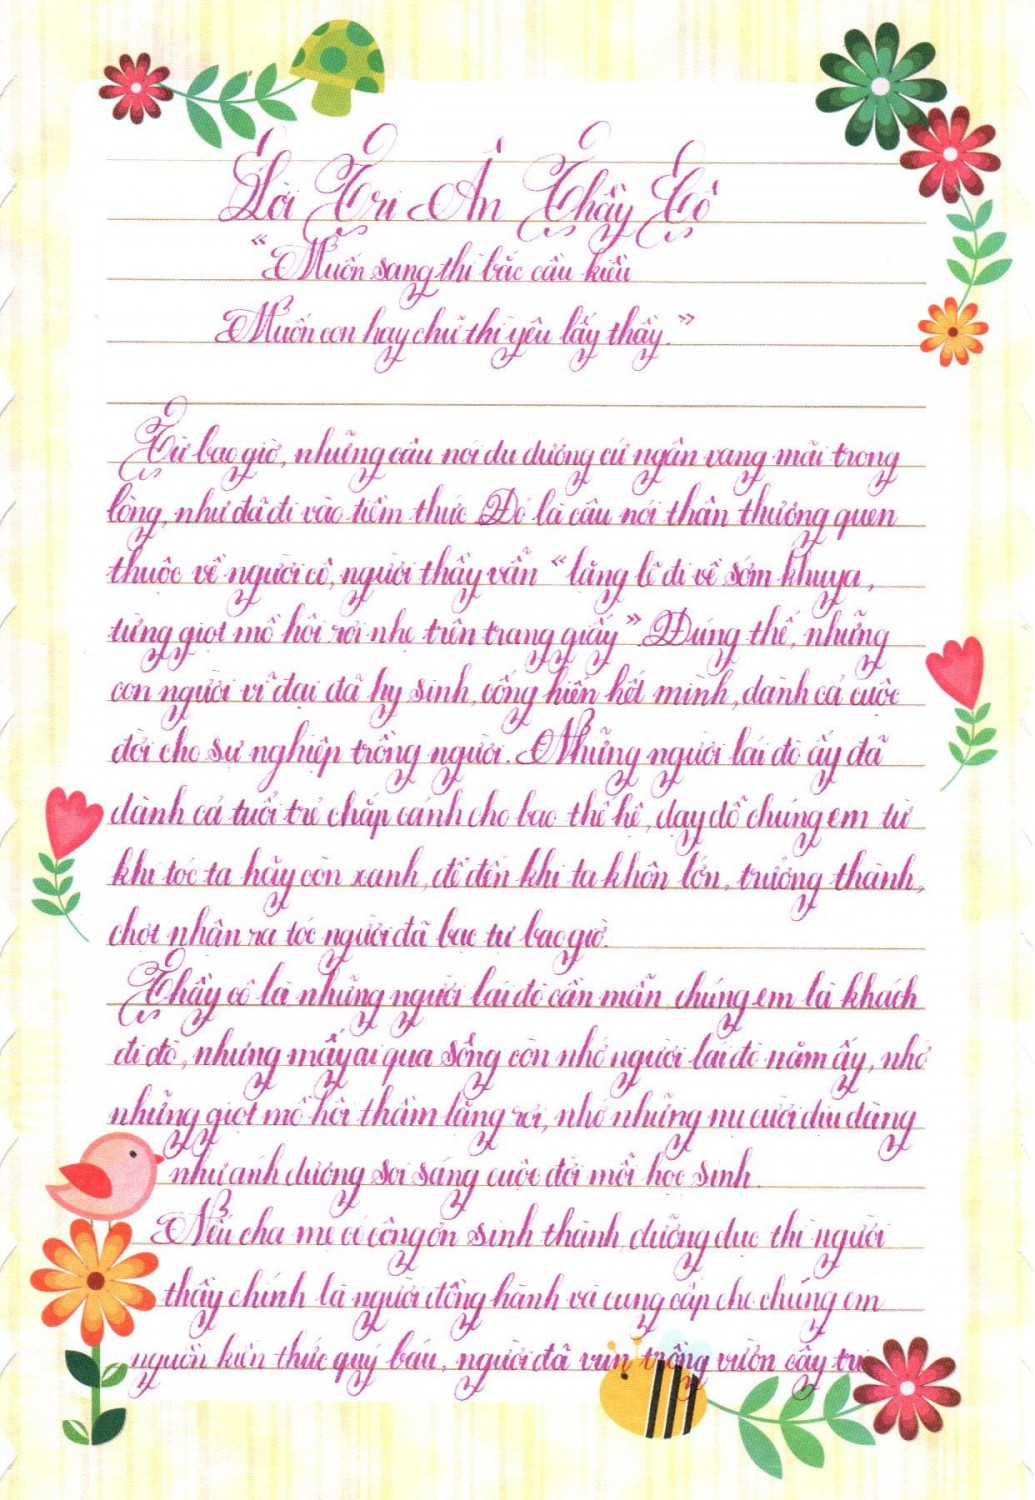 Lời Tri Ân Thầy Cô
“Muốn sang thì bắc cầu kiều
Muốn con hay chữ thì yêu lấy thầy.”
Từ bao giờ, những câu nói du dương cứ ngân vang mãi trong
lòng, như đã đi vào tiềm thức. Đó là câu nói thân thương quen
thuộc về người cô, người thầy vẫn “lặng lẽ đi về sớm khuya,
từng giọt mồ hôi rơi nhẹ trên trang giấy”. Đúng thế, những
con người vĩ đại đã hy sinh, cống hiến hết mình, dành cả cuộc
đời cho sự nghiệp trồng người. Những người lái đò ấy đã
dành cả tuổi trẻ chắp cánh cho bao thế hệ, dạy dỗ chúng em từ
khi tóc ta hãy còn xanh, để đến khi ta khôn lớn, trưởng thành,
chợt nhận ra tóc người đã bạc tự bao giờ.
Thầy cô là những người lái đò cần mẫn, chúng em là khách
đi đò, nhưng mấy ai qua sông còn nhớ người lái đò năm ấy, nhớ
những giọt mồ hôi thầm lặng rơi, nhớ những nụ cười dịu dàng
như ánh dương soi sáng cuộc đời mỗi học sinh.
Nếu cha mẹ có công ơn sinh thành, dưỡng dục thì người
thầy chính là người đồng hành và cung cấp cho chúng em
nguồn kiến thức quý báu, người đã vun trồng vườn cây tri